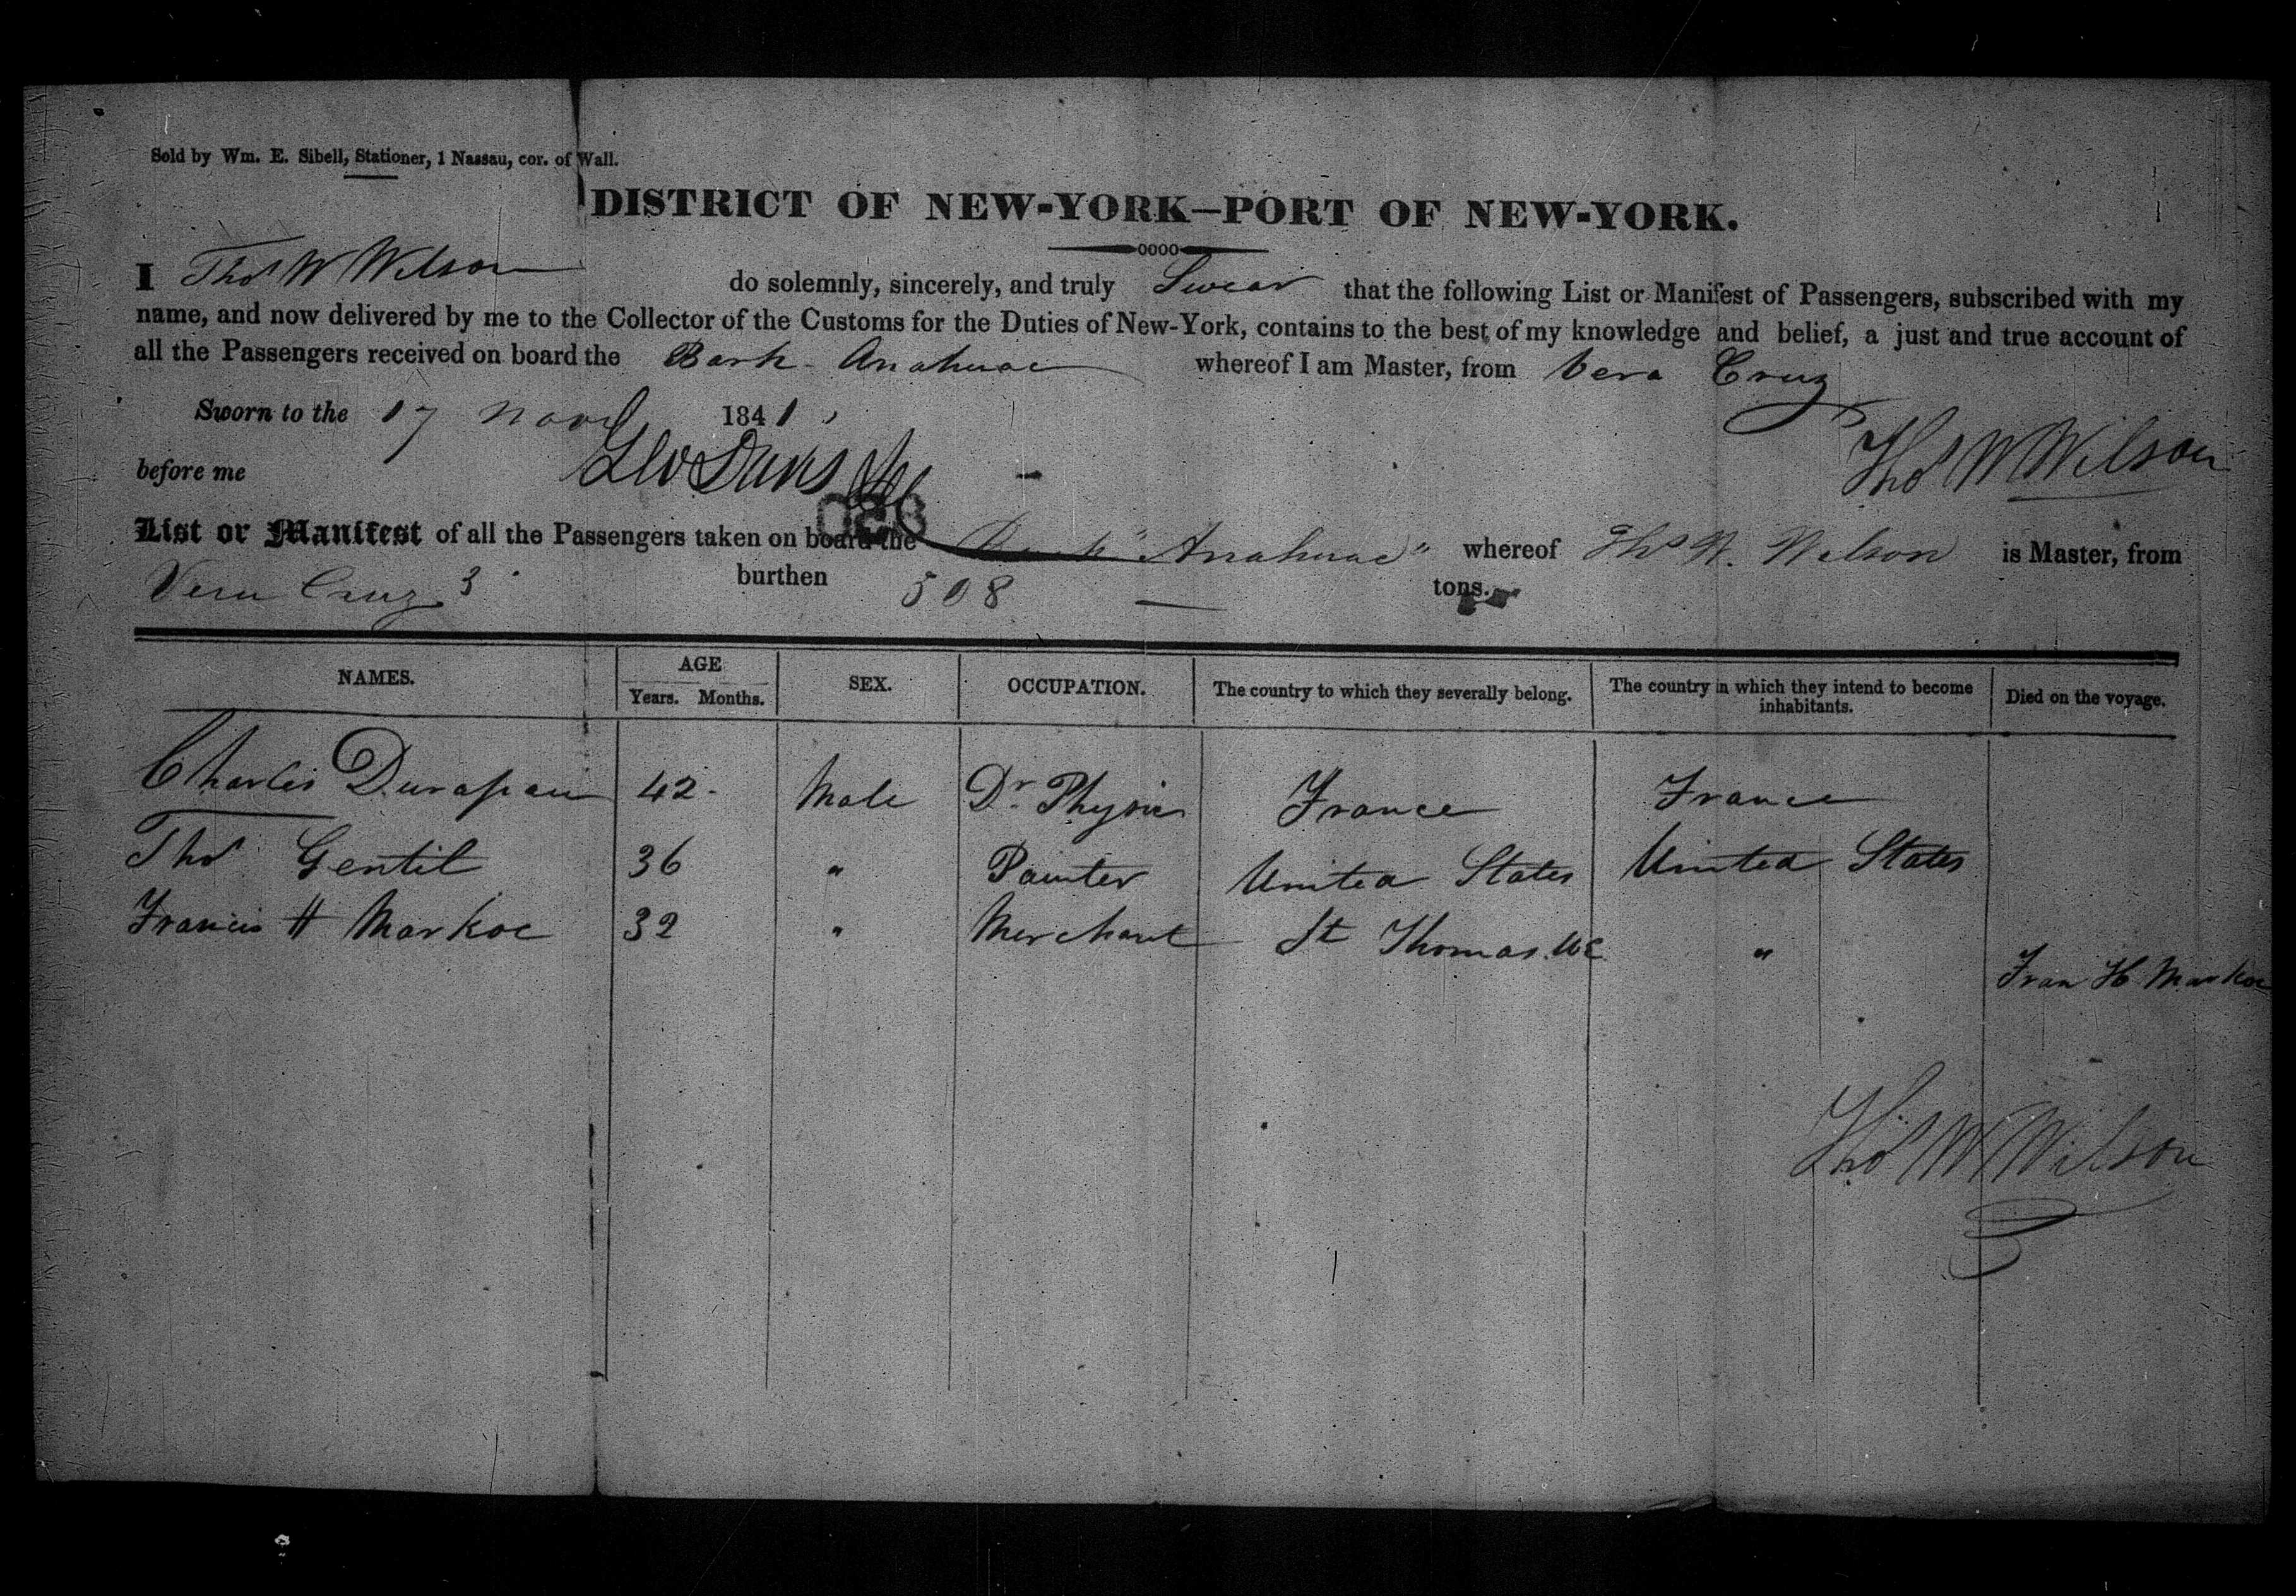 Sold by Wm. E. Sibell, Stationer, 1 Nassau, cor. of Wall.
DISTRICT OF NEW-YORK—PORT OF NEW-YORK.
I Thos W Wilson do solemnly, sincerely, and truly Swear that the following List or Manifest of Passengers, subscribed with my
name, and now delivered by me to the Collector of the Customs for the Duties of New-York, contains to the best of my knowledge and belief, a just and true account of
all the Passengers received on board the Bark Anahuac whereof I am Master, from Vera Cruz
Sworn to the 17 Novr 1841
Thos W Wilson
before me Geo Davis
List or Manifest of all the Passengers taken on board the Bark "Anahuac" whereof Thos W. Wilson is Master, from
Vera Cruz burthen 508 tons.
NAMES. AGE Years. Months. SEX. OCCUPATION. The country to which they severally belong. The country in which they intend to become inhabitants. Died on the voyage.
Charles 42 Male Dr Physic France France
Thos Gentil 36 " Painter United States United States
Francis H Markoe 32 " Merchant St Thomas "
Fran H Markoe
Thos W Wilson